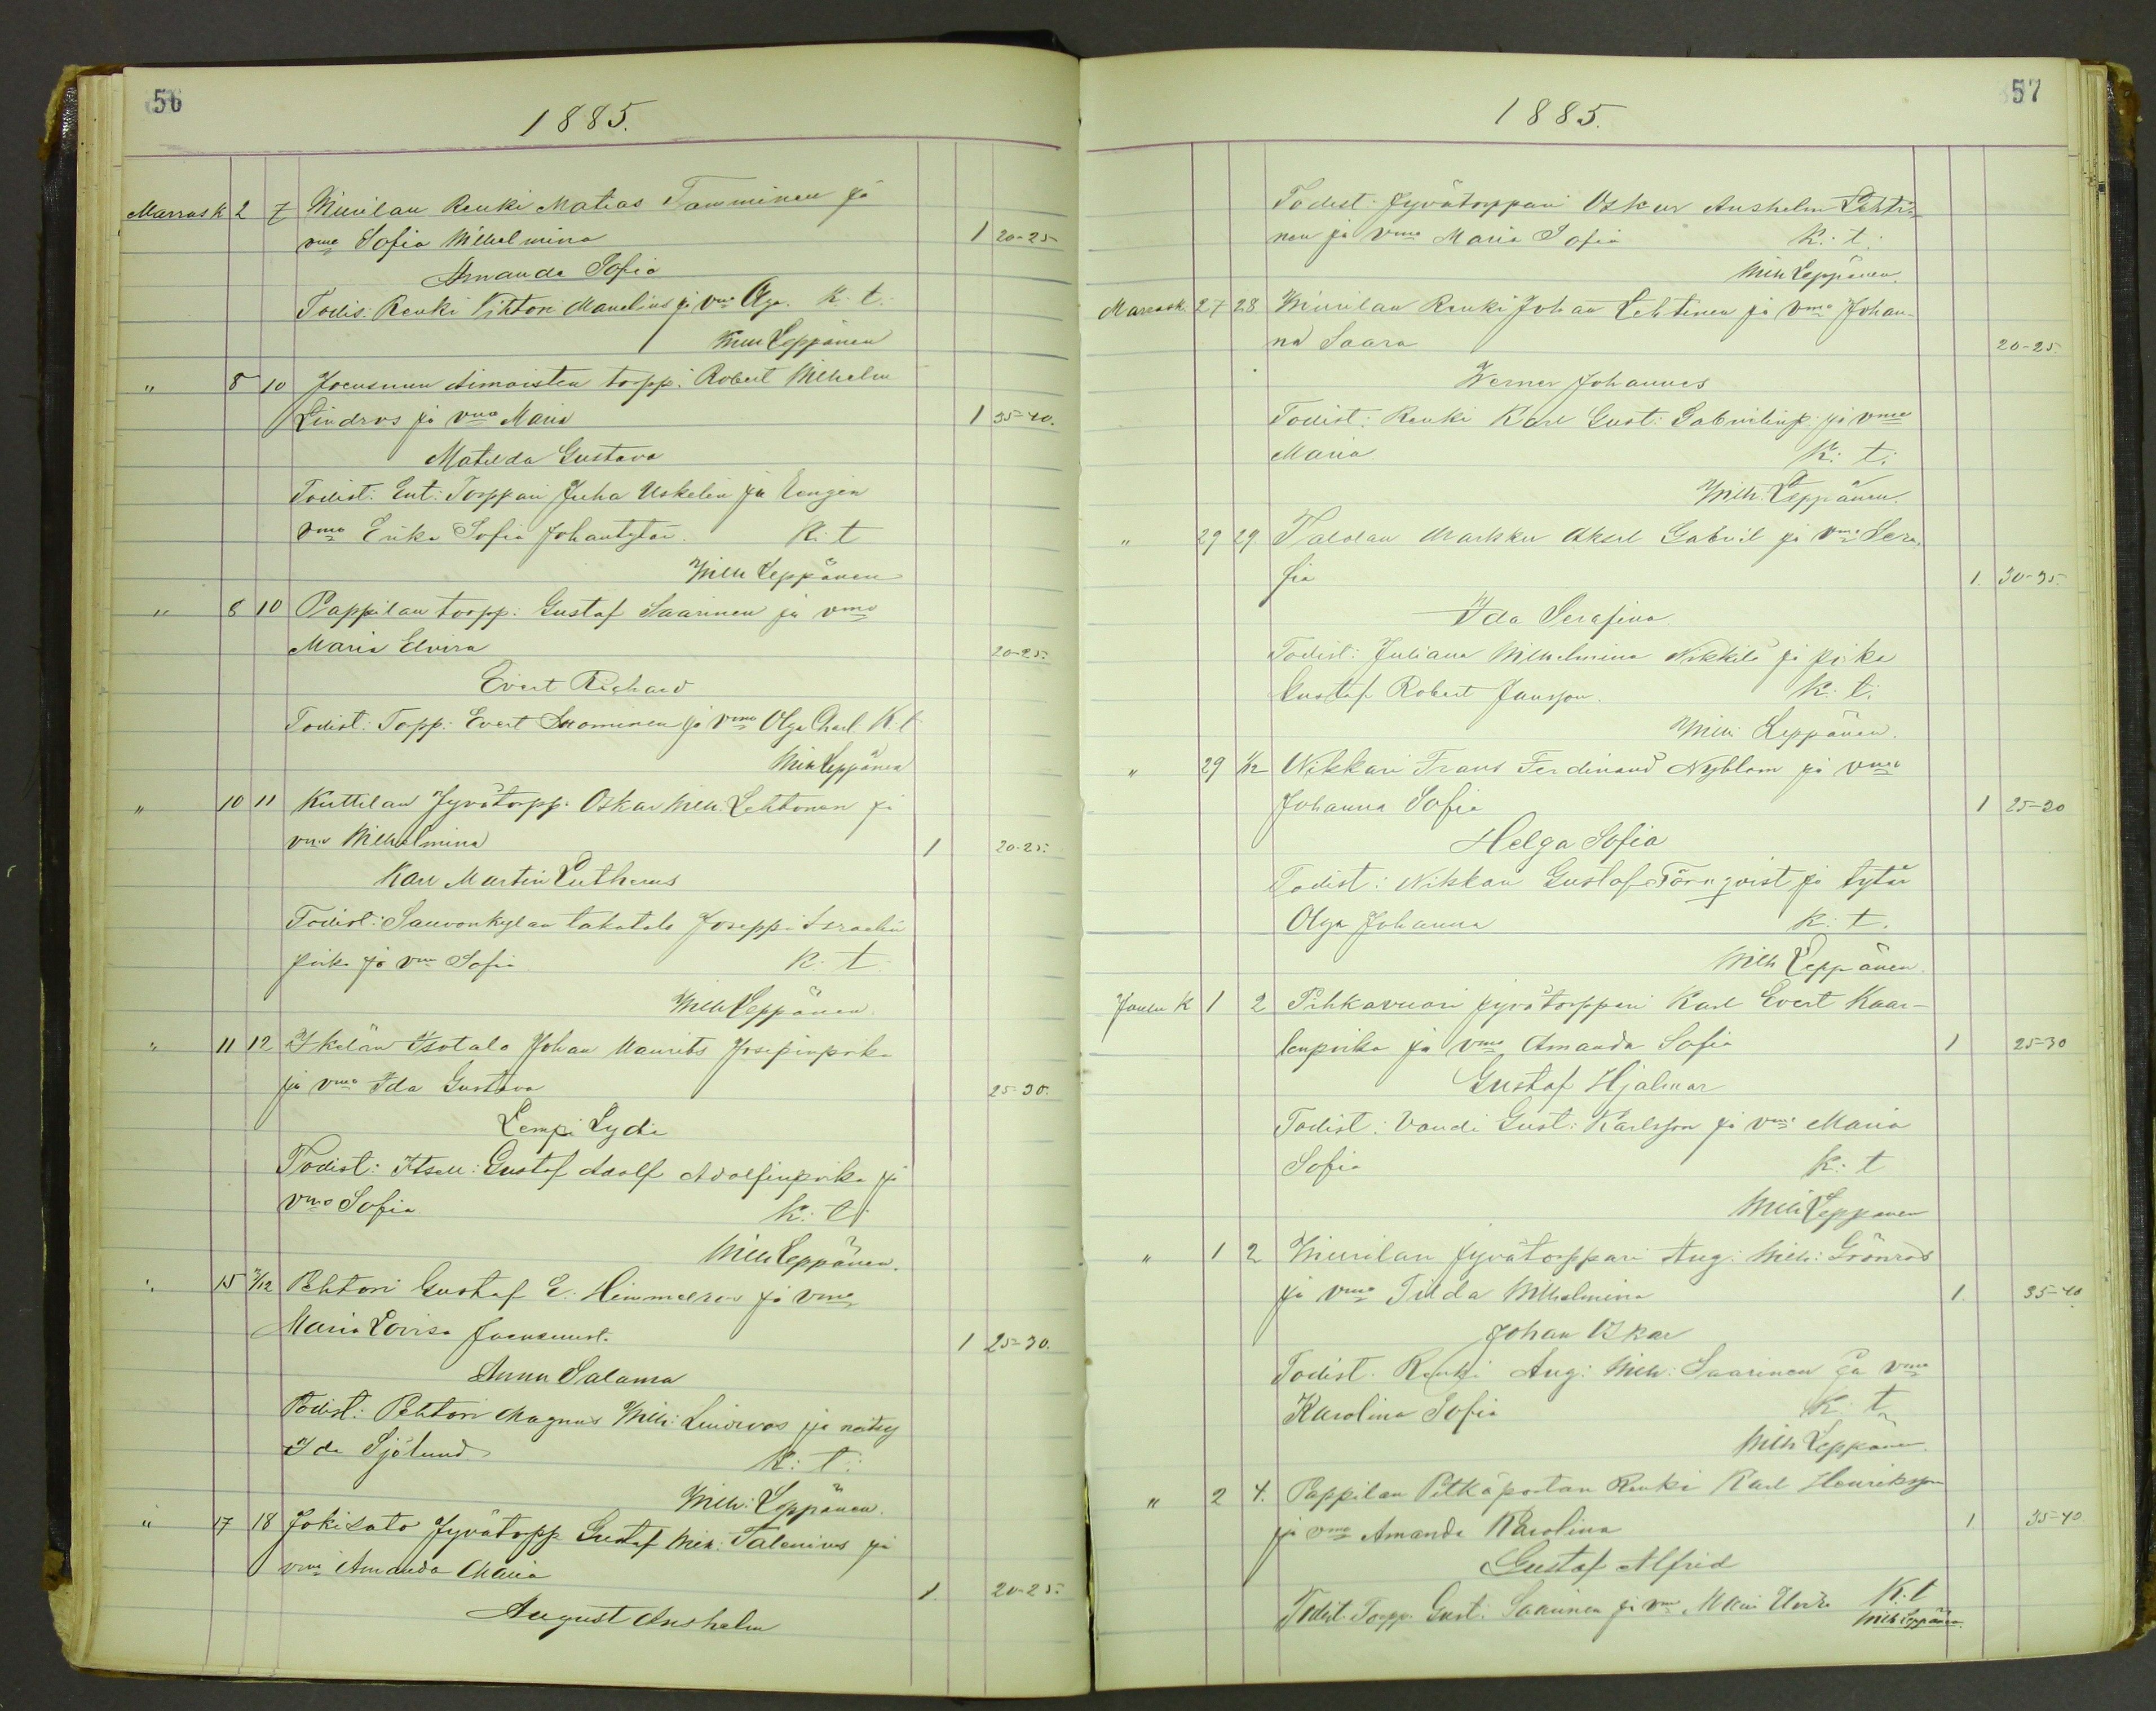 56
1885.
Marrask 2 7 Miurilan Renki Matias Tamminen ja
vmo Sofia Wilhelmina 1 20-25
Amanda Sofia
Todis: Renki Vihtori Manelius ja vmo Olga. K: t:
Wilh Leppänen
" 8 10 Joensuun Aimoisten torpp: Robert Wilhelm
Lindros ja vmo Maria 1 35-40.
Matilda Gustava
Todist: Ent: Torppari Juha Uskelin ja
vmo Erika Sofia Johantytär. K: t
Wilh Leppänen
" 8 10 Pappilan torpp: Gustaf Saarinen ja vmo
Maria Elvira 20-25.
Evert Richard
Todist: Topp: Evert Suominen ja vmo Olga Charl. K. t
Wilh Leppänen
" 10 11 Kuttilan Jyvätorpp: Oskar Wilh. Lehtonen ja
vmo Wilhelmina 1 20-25.
Karl Martin Lutherus
Todist: Sauvonkylän takatalo Joseppi Israelin
poika ja vmo Sofia K: t:
Wilh Leppänen.
" 11 12 Isotalo Johan Maurits Josefinpoika
ja vmo Ida Gustava 25-30.
Lempi Lydia
Todist: Itsell: Gustaf Adolf Adolfinpoika ja
vmo Sofia K: t:
Wilh Leppänen.
" 15 2/12 Pehtori Gustaf E. Himmelroos ja vmo
Maria Lovisa Joensuust. 1 25-30.
Anna Salama
Todist: Pehtori Magnus Wilh: Lindroos ja neitsy
Ida Sjölund K: t:
Wilh: Leppänen.
" 17 18 Jokisato Jyvätopp Gustaf Wilh: Talenius ja
vmo Amanda Maria 1. 20-25.
August Anshelm
57
1885.
Todist: Jyvätorppari Oskar Anshelm Lehti-
nen ja vmo Maria Sofia K: t:
Wilh Leppänen.
Marrask. 27 28 Miurilan Renki Johan Lehtinen ja vmo Johan-
na Saara 20-25.
Werner Johannes
Todist: Renki Karl Gust: Gabrielinp: ja vmo
Maria. K: t:
Wilh: Leppänen.
" 29 29 Markku Aksel Gabriel ja vmo Sera-
fia 1. 30-35.
Ida Serafina
Todist: Juliana Wilhelmina Nikkilä ja poika
Gustaf Robert Jansson. K: t:
Wilh: Leppänen.
" 29 1/12 Nikkari Frans Ferdinand Nyblom ja vmo
Johanna Sofia 1 25-30
Helga Sofia
Todist: Nikkari Gustaf Törnqvist ja tytär
Olga Johanna K: t.
Wilh Leppänen.
Jouluk 1 2 Pihkavuori jyvätorppari Karl Evert Kaar-
lenpoika ja vmo Amanda Sofia 1 25-30
Gustaf Hjalmar
Todist: Voudi Gust: Karlsson ja vmo Maria
Sofia K: t
Wilh Leppänen
" 1 2 Miurilan Jyvätorppari Aug: Wilh: Grönroos
ja vmo Tilda Wilhelmina 1. 35-40
Johan Oskar
Todist. Renki Aug: Wilh: Saarinen ja vmo
Karolina Sofia K: t
Wilh Leppänen.
" 2 4. Pappilan Pitkäportan Renki Karl Henriksson
ja vmo Amanda Karolina 1 35-40
Gustaf Alfrid
Todist. Torpp. Gust: Saarinen ja vmo Maria Elvira K: t
Wilh Leppänen.